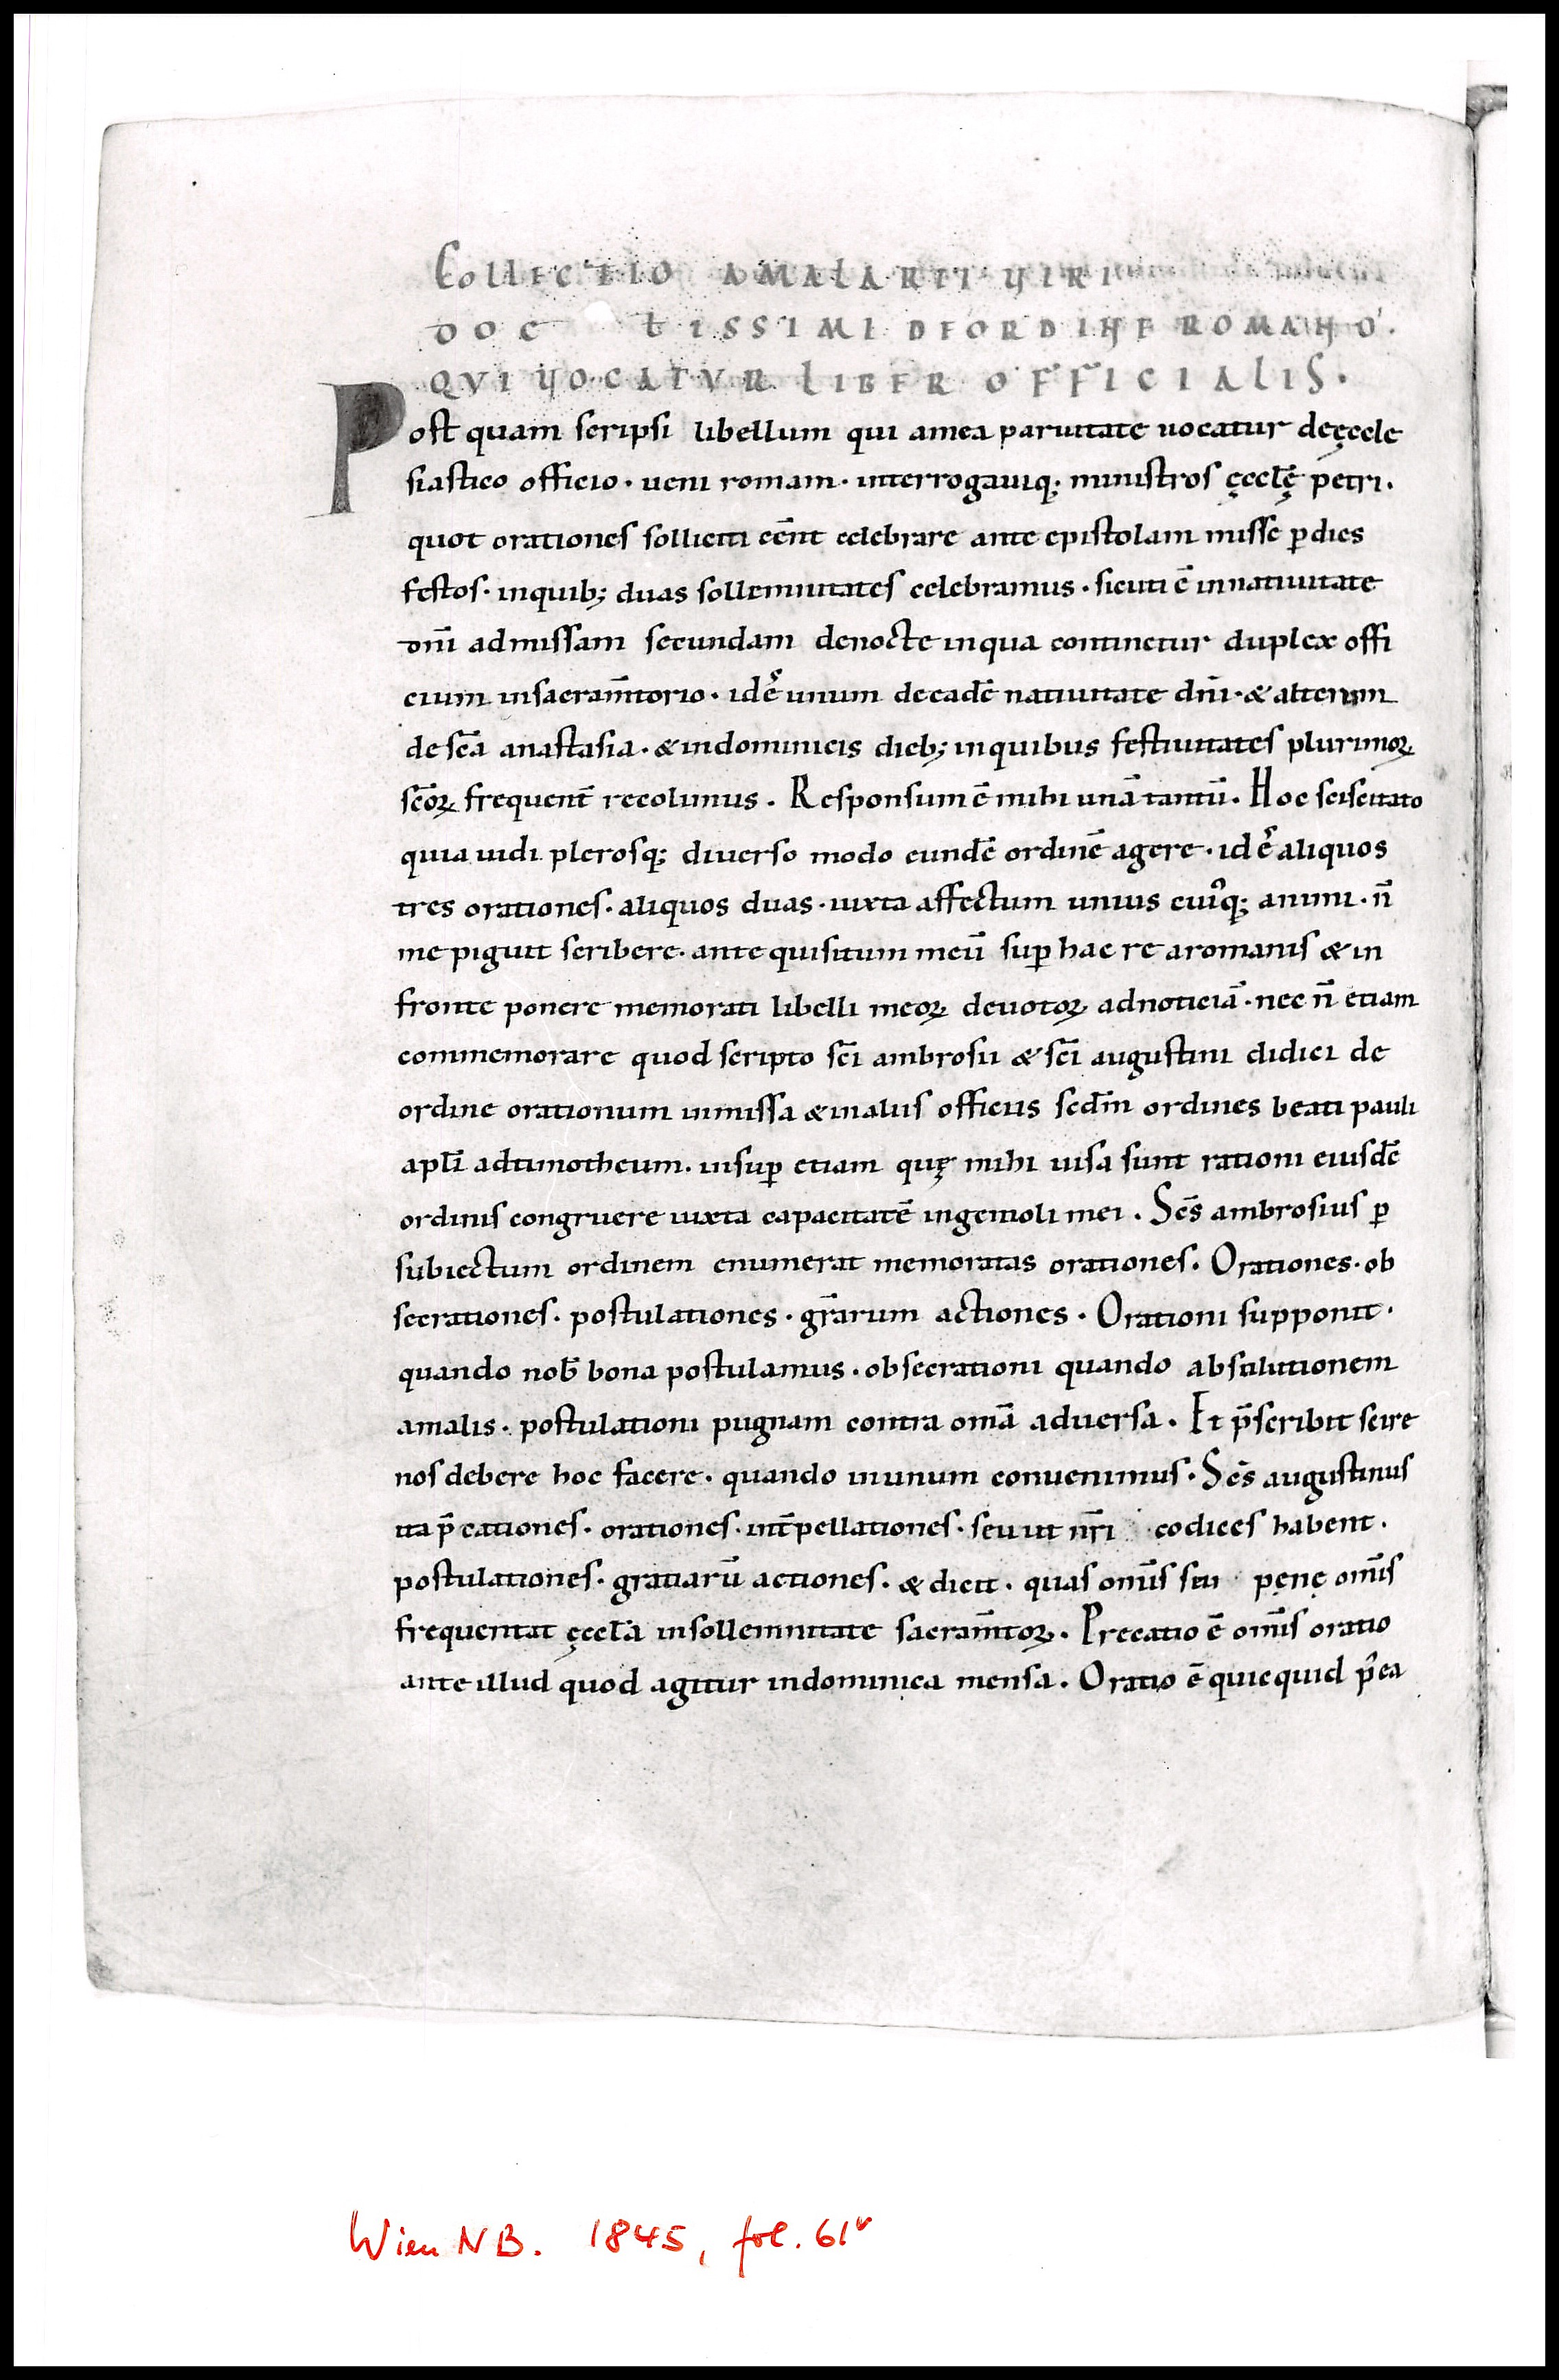 COLLECTIO AMALARII VIRI
DOCTISSIMI DE ORDINE ROMANO.
QVI VOCATVR LIBER OFFICIALIS.
Post quam scripsi libellum qui amea paruitate uocatur deęccle
siastico officio · ueni romam · interrogauiq; ministros ęccl̄ę petri.
quot orationes solliciti eēnt celebrare ante epistolam misse ꝑdies
festos · inquib; duas sollemnitates celebramus · sicuti ē innatiuitate
dn̄i admissam secundam denocte inqua continetur duplex offi
cium insacram̄torio · idē unum decadē natiuitate dn̄i · & alterum
de sc̄a anastasia · & indominicis dieb; inquibus festiuitates plurimoꝝ
sc̄oꝝ frequent̄ recolimus . Responsum ē mihi unā tantū . Hoc sciscitato
quia uidi plerosq; diuerso modo eundē ordinē agere · id ē aliquos
tres orationes · aliquos duas · iuxta affectum unius cui᷒q; animi · n̄
me piguit scribere · ante quisitum meū suꝑ hac re aromanis & in
fronte ponere memorati libelli meoꝝ deuotoꝝ adnoticiā · nec n̄ etiam
commemorare quod scripto sc̄i ambrosii & sc̄i augustini didici de
ordine orationum inmissa & inaliis officiis secd̄m ordines beati pauli
apl̄i adtimotheum . insuꝑ etiam quę mihi uisa sunt rationi eiusdē
ordinis congruere iuxta capacitatē ingenioli mei . Sc̄s ambrosius ꝑ
subiectum ordinem enumerat memoratas orationes . Orationes · ob
secrationes . postulationes · gr̄arum actiones . Orationi supponit ·
quando nob̄ bona postulamus · obsecrationi quando absolutionem
amalis . postulationi pugnam contra omā aduersa . Et p̄scribit scire
nos debere hoc facere · quando inunum conuenimus . Sc̄s augustinus
ita p̄cationes · orationes · int̄pellationes · seu ut nr̄i codices habent .
postulationes · gratiarū actiones . & dicit . quas omīs seu pęnę omīs
frequentat ęccl̄a insollemnitate sacram̄toꝝ . Precatio ē omīs oratio
ante illud quod agitur indominica mensa . Oratio ē quicquid p̄ea
Wien NB. 1845, fol. 61ᵛ